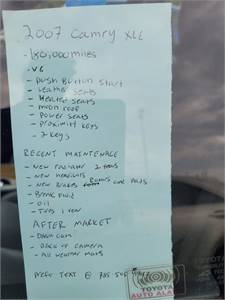 2007 Camry XLE
- 180,000 miles
- V6
- push Button Start
- Leather seats
- Heated seats
- moon roof
- Power seats
- proximity keys
- 2 keys
RECENT MAINTENACE
- New radiator
- New headlights
- New Brakes Rotors and Pads
- Break Fluid
- oil
- Tires 1 year
AFTER MARKET
- Dash cam
- Back up camera
- All weather mats
TEXT @
TOYOTA
AUTO ALA